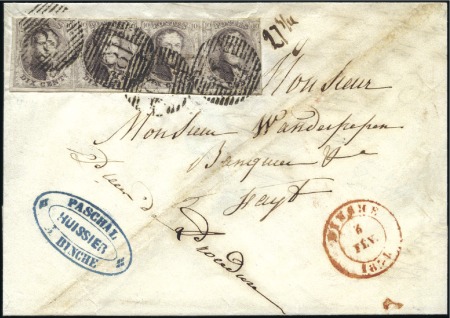 DIX CENTS
18
27 1/2
Monsieur
Monsieur Vanderpepen
Banquier &a
fayt
Procédure
PASCHAL
HUISSIER
À BINCHE
BINCHE
6
FEV.
1854